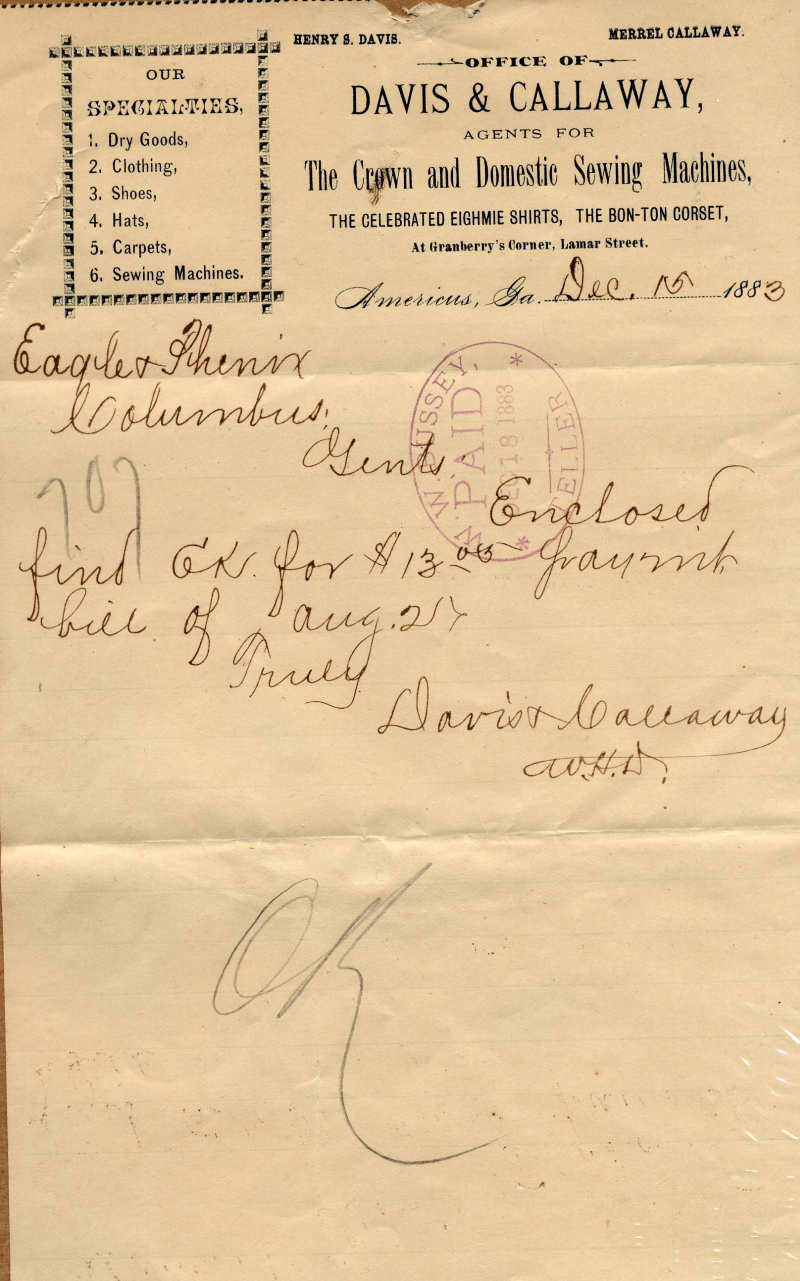 HENRY S. DAVIS.
MERREL CALLAWAY.
OUR
SPECIALTIES,
1. Dry Goods,
2. Clothing,
3. Shoes,
4. Hats,
5. Carpets,
6. Sewing Machines.
OFFICE OF
DAVIS & CALLAWAY,
AGENTS FOR
The Crown and Domestic Sewing Machines,
THE CELEBRATED EIGHMIE SHIRTS, THE BON-TON CORSET,
At Granberry's Corner, Lamar Street.
Americus, Ga. Dec. 15 1883
Eagle & Phenix
Columbus,
Gents:
W. W. BUSSEY,
PAID
18 1883
TELLER
707
Enclosed
find CK. for $13
bill of Aug. 25
Truly
Davis & Callaway
W.H.D.
OK